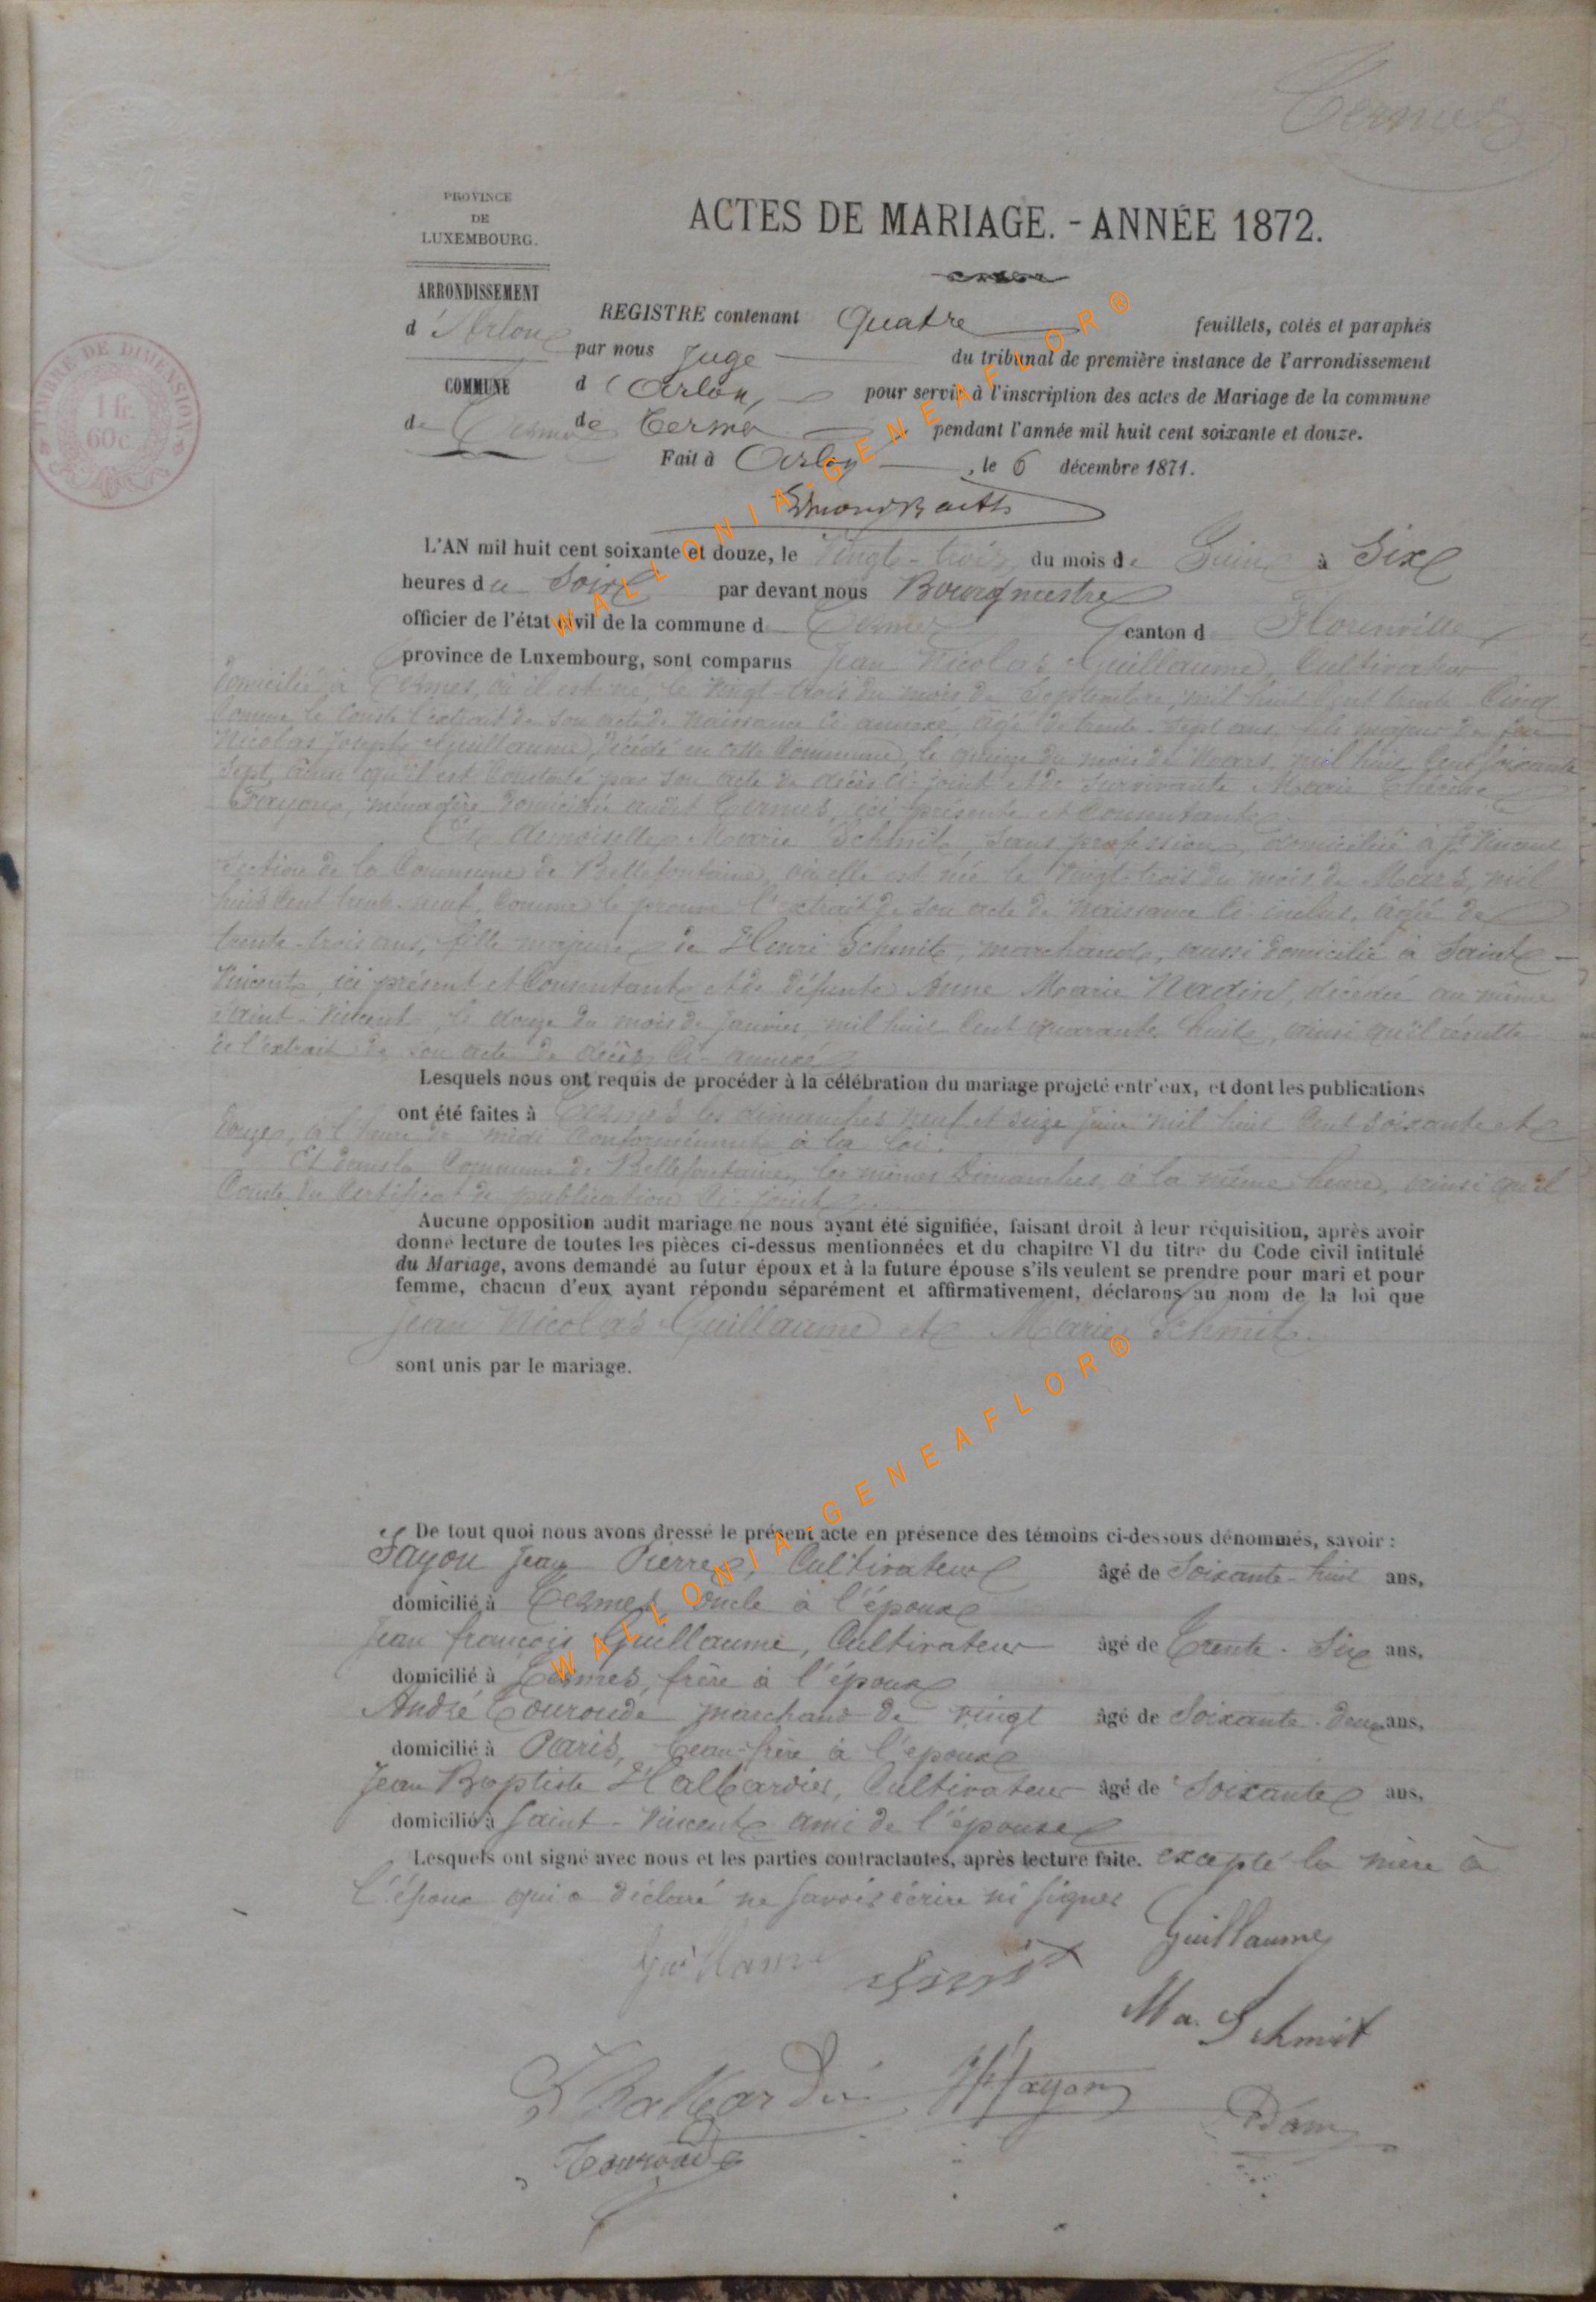 Termes
PROVINCE
DE
LUXEMBOURG.
ACTES DE MARIAGE. - ANNÉE 1872.
ARRONDISSEMENT
d'Arlon
COMMUNE
de Termes
TIMBRE DE DIMENSION
1 fr.
60c.
REGISTRE contenant Quatre feuillets, cotés et paraphés
par nous Juge du tribunal de première instance de l'arrondissement
d'Arlon, pour servir à l'inscription des actes de Mariage de la commune
de Termes pendant l'année mil huit cent soixante et douze.
Fait à Arlon, le 6 décembre 1871.
L'AN mil huit cent soixante et douze, le Vingt-trois du mois de Juin à Six
heures du Soir par devant nous Bourgmestre
officier de l'état civil de la commune de Termes canton de Florenville
province de Luxembourg, sont comparus Jean Nicolas Guillaume, Cultivateur
domicilié à Termes, où il est né, le vingt-trois du mois de Septembre, mil huit cent trente cinq
Comme le Conste l'extrait de son acte de Naissance ci annexé, âgé de trente-sept ans, fils majeur de feu
Nicolas Joseph Guillaume, décédé en cette Commune, le quinze du mois de Mars, mil huit cent soixante
sept, ainsi qu'il est Constaté par son acte de décès ci-joint et de survivante Marie Thérèse
Fayon, ménagère domiciliée audit Termes, ici présente et Consentante.
Et demoiselle Marie Schmit, sans profession, domiciliée à St Vincent
Section de la Commune de Bellefontaine, où elle est née le Vingt-trois du mois de Mars, mil
huit cent trente-neuf, Comme le prouve l'extrait de son acte de Naissance ci-inclus, âgée de
trente-trois ans, fille majeure de Henri Schmit, marchand, aussi domicilié à Saint-
Vincent, ici présent et Consentant et de défunte Anne Marie Nadin, décédée au même
Saint-Vincent, le douze du mois de Janvier, mil huit cent quarante huit, ainsi qu'il résulte
de l'extrait de son acte de décès ci-annexé
Lesquels nous ont requis de procéder à la célébration du mariage projeté entr'eux, et dont les publications
ont été faites à Termes les dimanches neuf et seize juin mil huit cent soixante et
douze, à l'heure de midi Conformément à la loi.
Et dans la Commune de Bellefontaine, les mêmes Dimanches, à la même heure, ainsi qu'il
Conste du Certificat de publication ci-joint.
Aucune opposition audit mariage ne nous ayant été signifiée, faisant droit à leur réquisition, après avoir
donné lecture de toutes les pièces ci-dessus mentionnées et du chapitre VI du titre du Code civil intitulé
du Mariage, avons demandé au futur époux et à la future épouse s'ils veulent se prendre pour mari et pour
femme, chacun d'eux ayant répondu séparément et affirmativement, déclarons au nom de la loi que
Jean Nicolas Guillaume et Marie Schmit
sont unis par le mariage.
De tout quoi nous avons dressé le présent acte en présence des témoins ci-dessous dénommés, savoir :
Fayon Jean Pierre, Cultivateur âgé de Soixante-huit ans,
domicilié à Termes, oncle à l'époux
Jean françois Guillaume, Cultivateur âgé de Trente-Six ans,
domicilié à Termes, frère à l'époux
André Touroude marchand de vingt âgé de Soixante-deux ans,
domicilié à Paris, beau-frère à l'époux
Jean Baptiste Halbardier, Cultivateur âgé de Soixante ans,
domicilié à Saint-Vincent ami de l'épouse
Lesquels ont signé avec nous et les parties contractantes, après lecture faite. excepté la mère à
l'époux qui a déclaré ne savoir écrire ni signer
Guillaume
Guillaume
Ma. Schmit
Halbardié
JP Fayon
Touroude
WALLONIA-GENEAFLOR®
WALLONIA-GENEAFLOR®